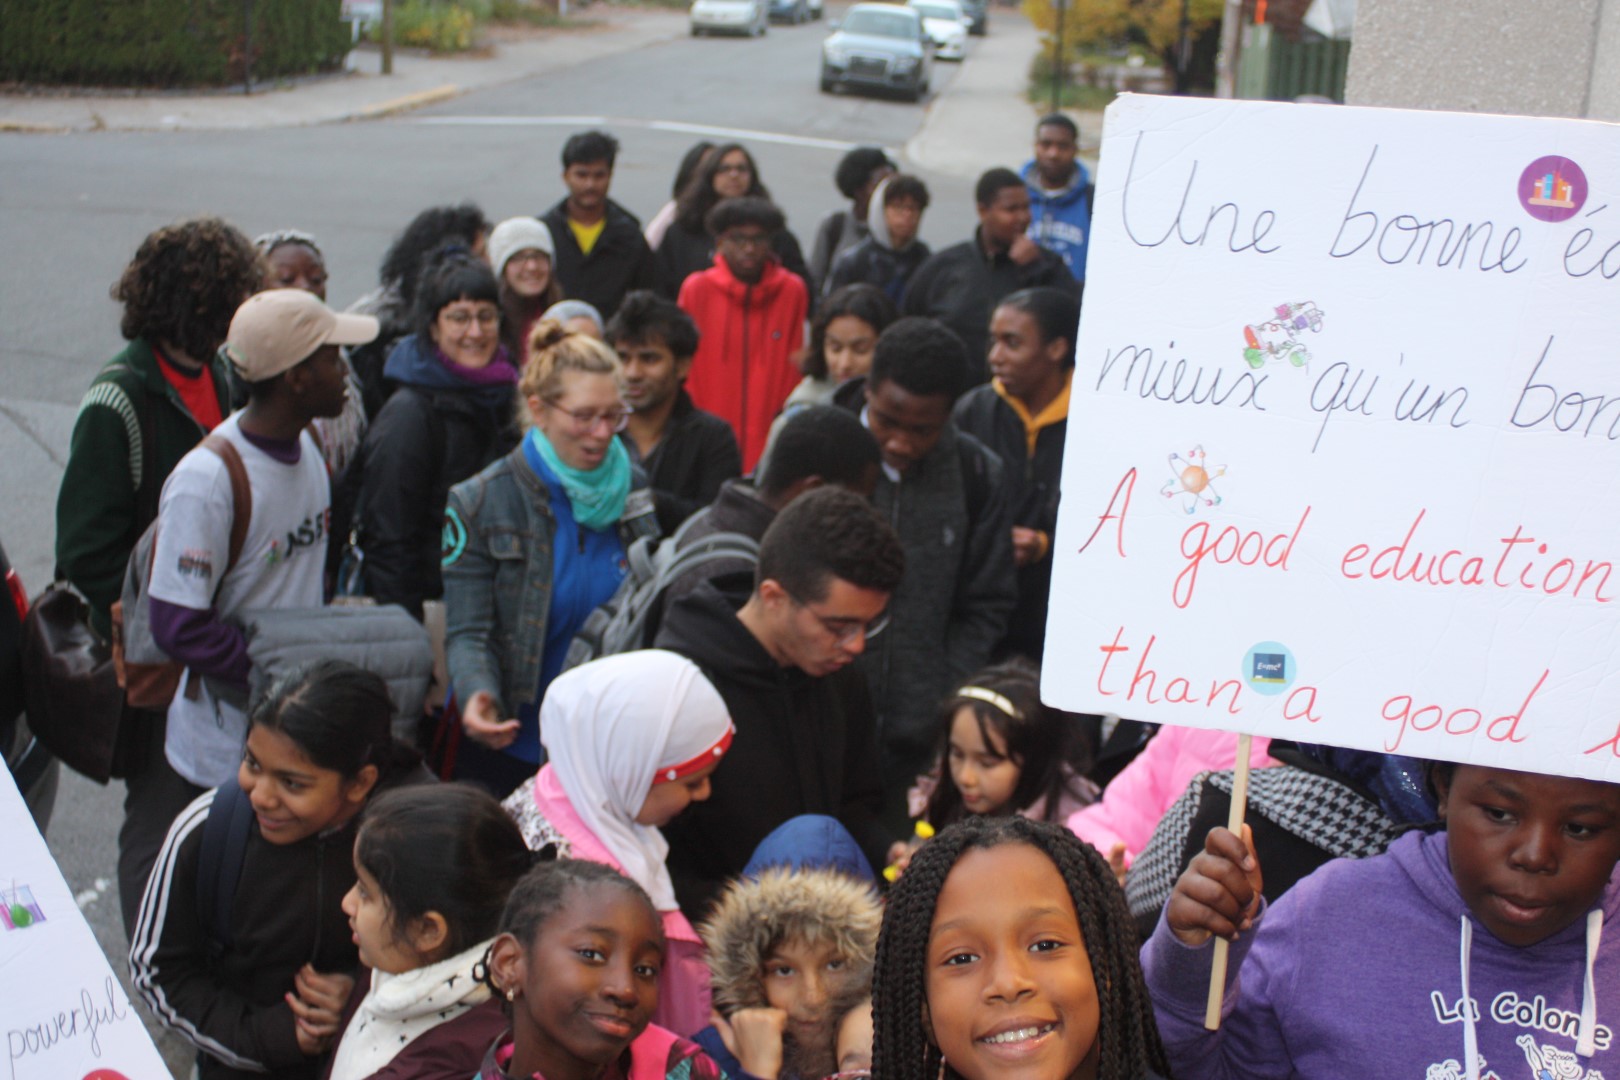 Une bonne
mieux qu'un
A good education
than a good
E=mc²
powerful
La Colonie